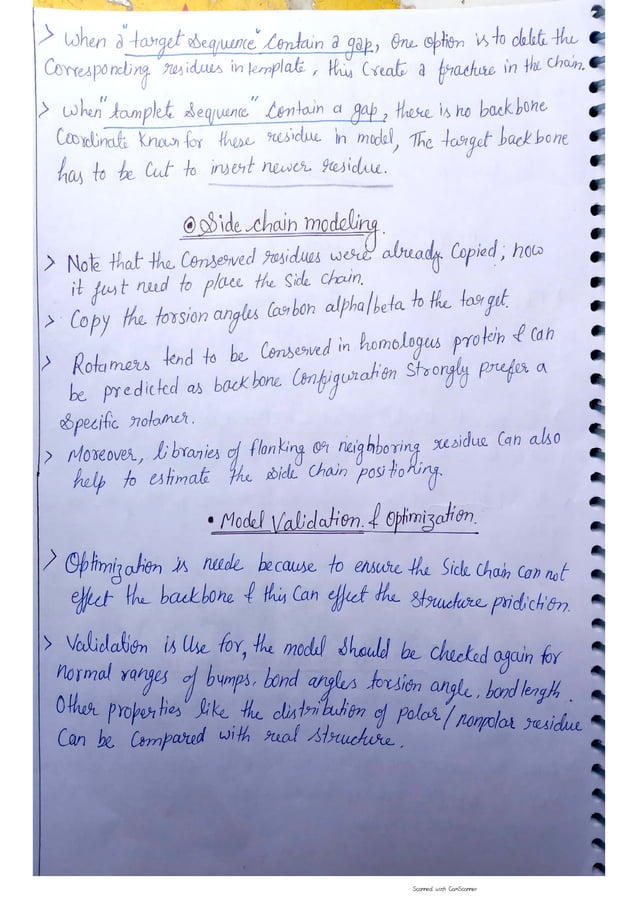 > When a "target sequence" Contain a gap, One option is to delete the
Corresponding residues in template, this Create a fracture in the Chain.
> When "tamplete Sequence" Contain a gap, there is no backbone
Coordinate Known for these residue in model, The target backbone
has to be Cut to insert newer residue.
⊙ Side chain modeling.
> Note that the Conserved residues were already Copied; now
it just need to place the Side Chain.
> Copy the torsion angles Carbon alpha/beta to the target.
> Rotamers tend to be Conserved in homologus protein & Can
be predicted as backbone Configuration Strongly prefer a
Specific rotamer.
> Moreover, libraries of flanking or neighboring residue Can also
help to estimate the side chain positioning.
• Model Validation & Optimization.
> Optimization is neede because to ensure the Side Chain Can not
effect the backbone & this Can effect the Structure pridiction.
> Validation is Use for, the model Should be checked again for
normal ranges of bumps, bond angles torsion angle, bond length.
Other properties like the distribution of polar/nonpolar residue
Can be Compared with real structure.
Scanned with CamScanner